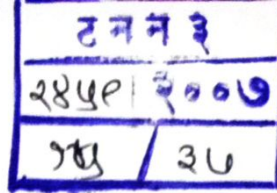 ट न न ३
२४५९ २००७
/ ३५